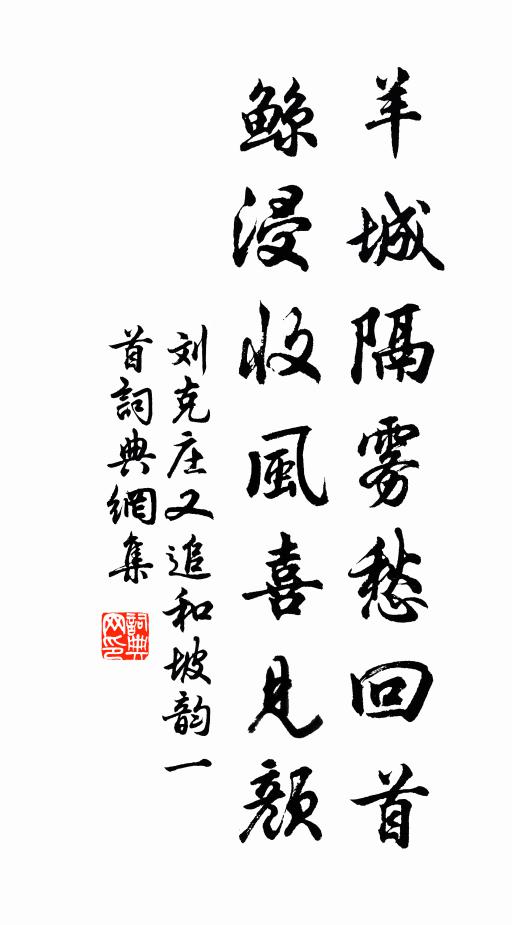 羊城隔雾愁回首
鲸浸收風喜見顏
刘克庄又追和坡韵一
首詞典網集
詞典
网印